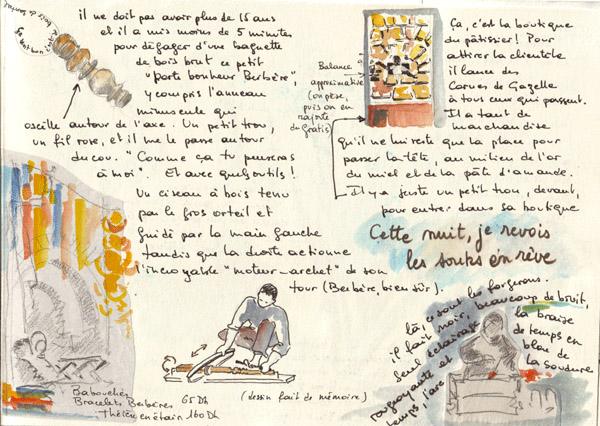 bois de santal
Ça sent bon !
il ne doit pas avoir plus de 15 ans
et il a mis moins de 5 minutes
pour dégager d'une baguette
de bois brut ce petit
"porte bonheur Berbère"
y compris l'anneau
minuscule qui
oscille autour de l'axe. Un petit trou,
un fil rose, et il me le passe autour
du cou. "Comme ça tu penseras
à moi". Et avec quels outils !
Un ciseau à bois tenu
par le gros orteil et
guidé par la main gauche
tandis que la droite actionne
l'incroyable "moteur-archet" de son
tour (Berbère, bien sûr).
(dessin fait de mémoire)
Babouches
Bracelets Berbères 65 Dh
Théière en étain 160 Dh
Balance
approximative
(on pèse,
puis on en
rajoute
du gratis)
Ça, c'est la boutique
du pâtissier ! Pour
attirer la clientèle
il lance des
Cornes de Gazelle
à tous ceux qui passent.
Il a tant de
marchandise
qu'il ne lui reste que la place pour
passer la tête, au milieu de l'or
du miel et de la pâte d'amande.
Il y a juste un petit trou, devant,
pour entrer dans sa boutique
Cette nuit, je revois
les souks en rêve
là, ce sont les forgerons.
il fait noir, beaucoup de bruit,
seul éclairage la braise
rougeoyante et de temps en
temps, l'arc bleu de
la soudure